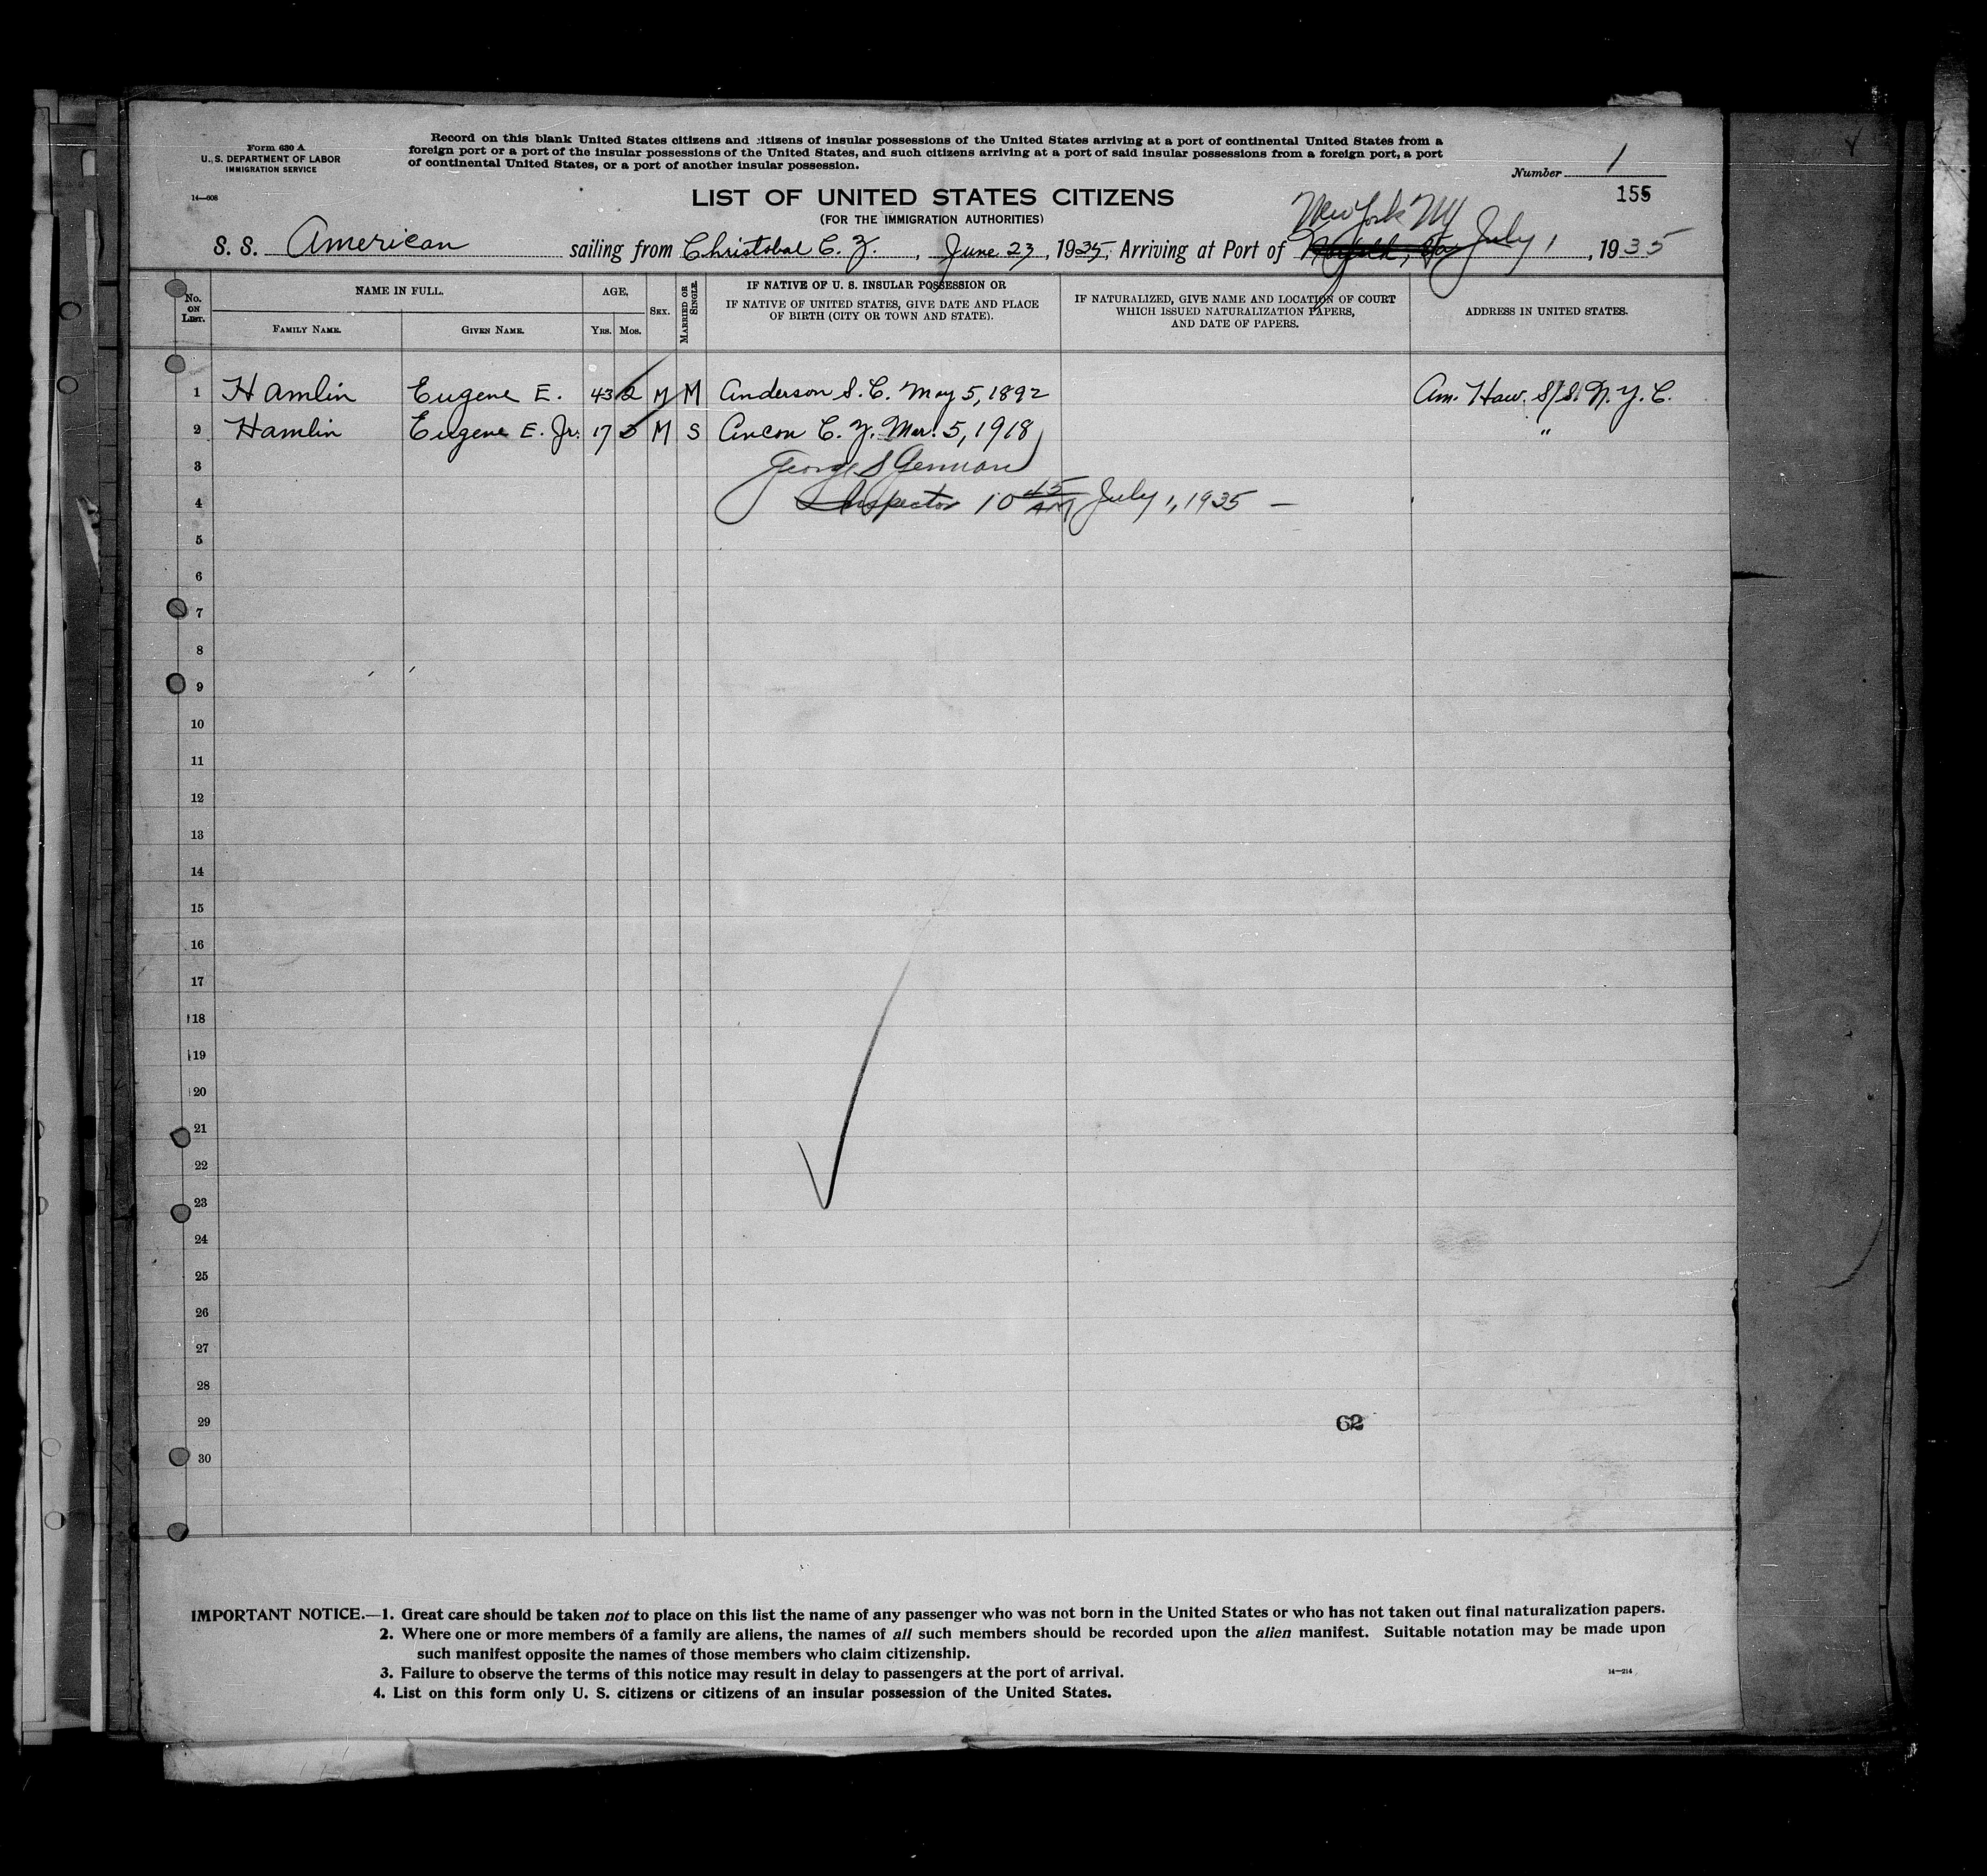 Form 630 A
U. S. DEPARTMENT OF LABOR
IMMIGRATION SERVICE
14—608
Record on this blank United States citizens and citizens of insular possessions of the United States arriving at a port of continental United States from a
foreign port or a port of the insular possessions of the United States, and such citizens arriving at a port of said insular possessions from a foreign port, a port
of continental United States, or a port of another insular possession.
Number 1
155
LIST OF UNITED STATES CITIZENS
(FOR THE IMMIGRATION AUTHORITIES)
New York NY
S. S. American sailing from Christobal C. Z., June 23, 1935, Arriving at Port of Norfolk, Va July 1, 1935
No. ON LIST.
NAME IN FULL.
FAMILY NAME.
GIVEN NAME.
AGE.
YRS. MOS.
SEX.
MARRIED OR SINGLE.
IF NATIVE OF U. S. INSULAR POSSESSION OR
IF NATIVE OF UNITED STATES, GIVE DATE AND PLACE
OF BIRTH (CITY OR TOWN AND STATE).
IF NATURALIZED, GIVE NAME AND LOCATION OF COURT
WHICH ISSUED NATURALIZATION PAPERS,
AND DATE OF PAPERS.
ADDRESS IN UNITED STATES.
1 Hamlin Eugene E. 43 2 M M Anderson S. C. May 5, 1892 Am. Haw. S/S. N. Y. C.
2 Hamlin Eugene E. Jr. 17 M S Ancon C. Z. Mar. 5, 1918 "
3 George S
4 Inspector 10 45 AM July 1, 1935 —
5
6
7
8
9
10
11
12
13
14
15
16
17
18
19
20
21
22
23
24
25
26
27
28
29
62
30
IMPORTANT NOTICE.—1. Great care should be taken not to place on this list the name of any passenger who was not born in the United States or who has not taken out final naturalization papers.
2. Where one or more members of a family are aliens, the names of all such members should be recorded upon the alien manifest. Suitable notation may be made upon
such manifest opposite the names of those members who claim citizenship.
3. Failure to observe the terms of this notice may result in delay to passengers at the port of arrival.
14—214
4. List on this form only U. S. citizens or citizens of an insular possession of the United States.